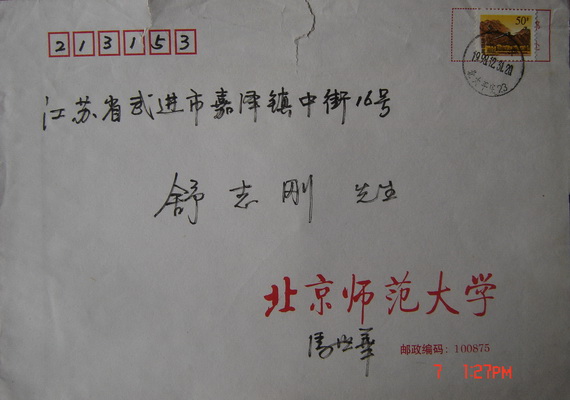 213153
50分
江苏省武进市嘉泽镇中街16号
舒志刚 先生
北京师范大学
邮政编码：100875
7 1:27PM